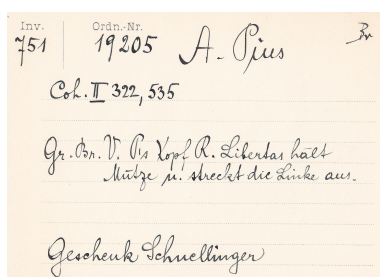 Inv. Ordn.-Nr. Br
751 19205 A. Pius
Coh. II 322, 535
Gr. Br. V. Ps Kopf R. Libertas hält
Mütze u. streckt die Linke aus.
Geschenk Schnellinger